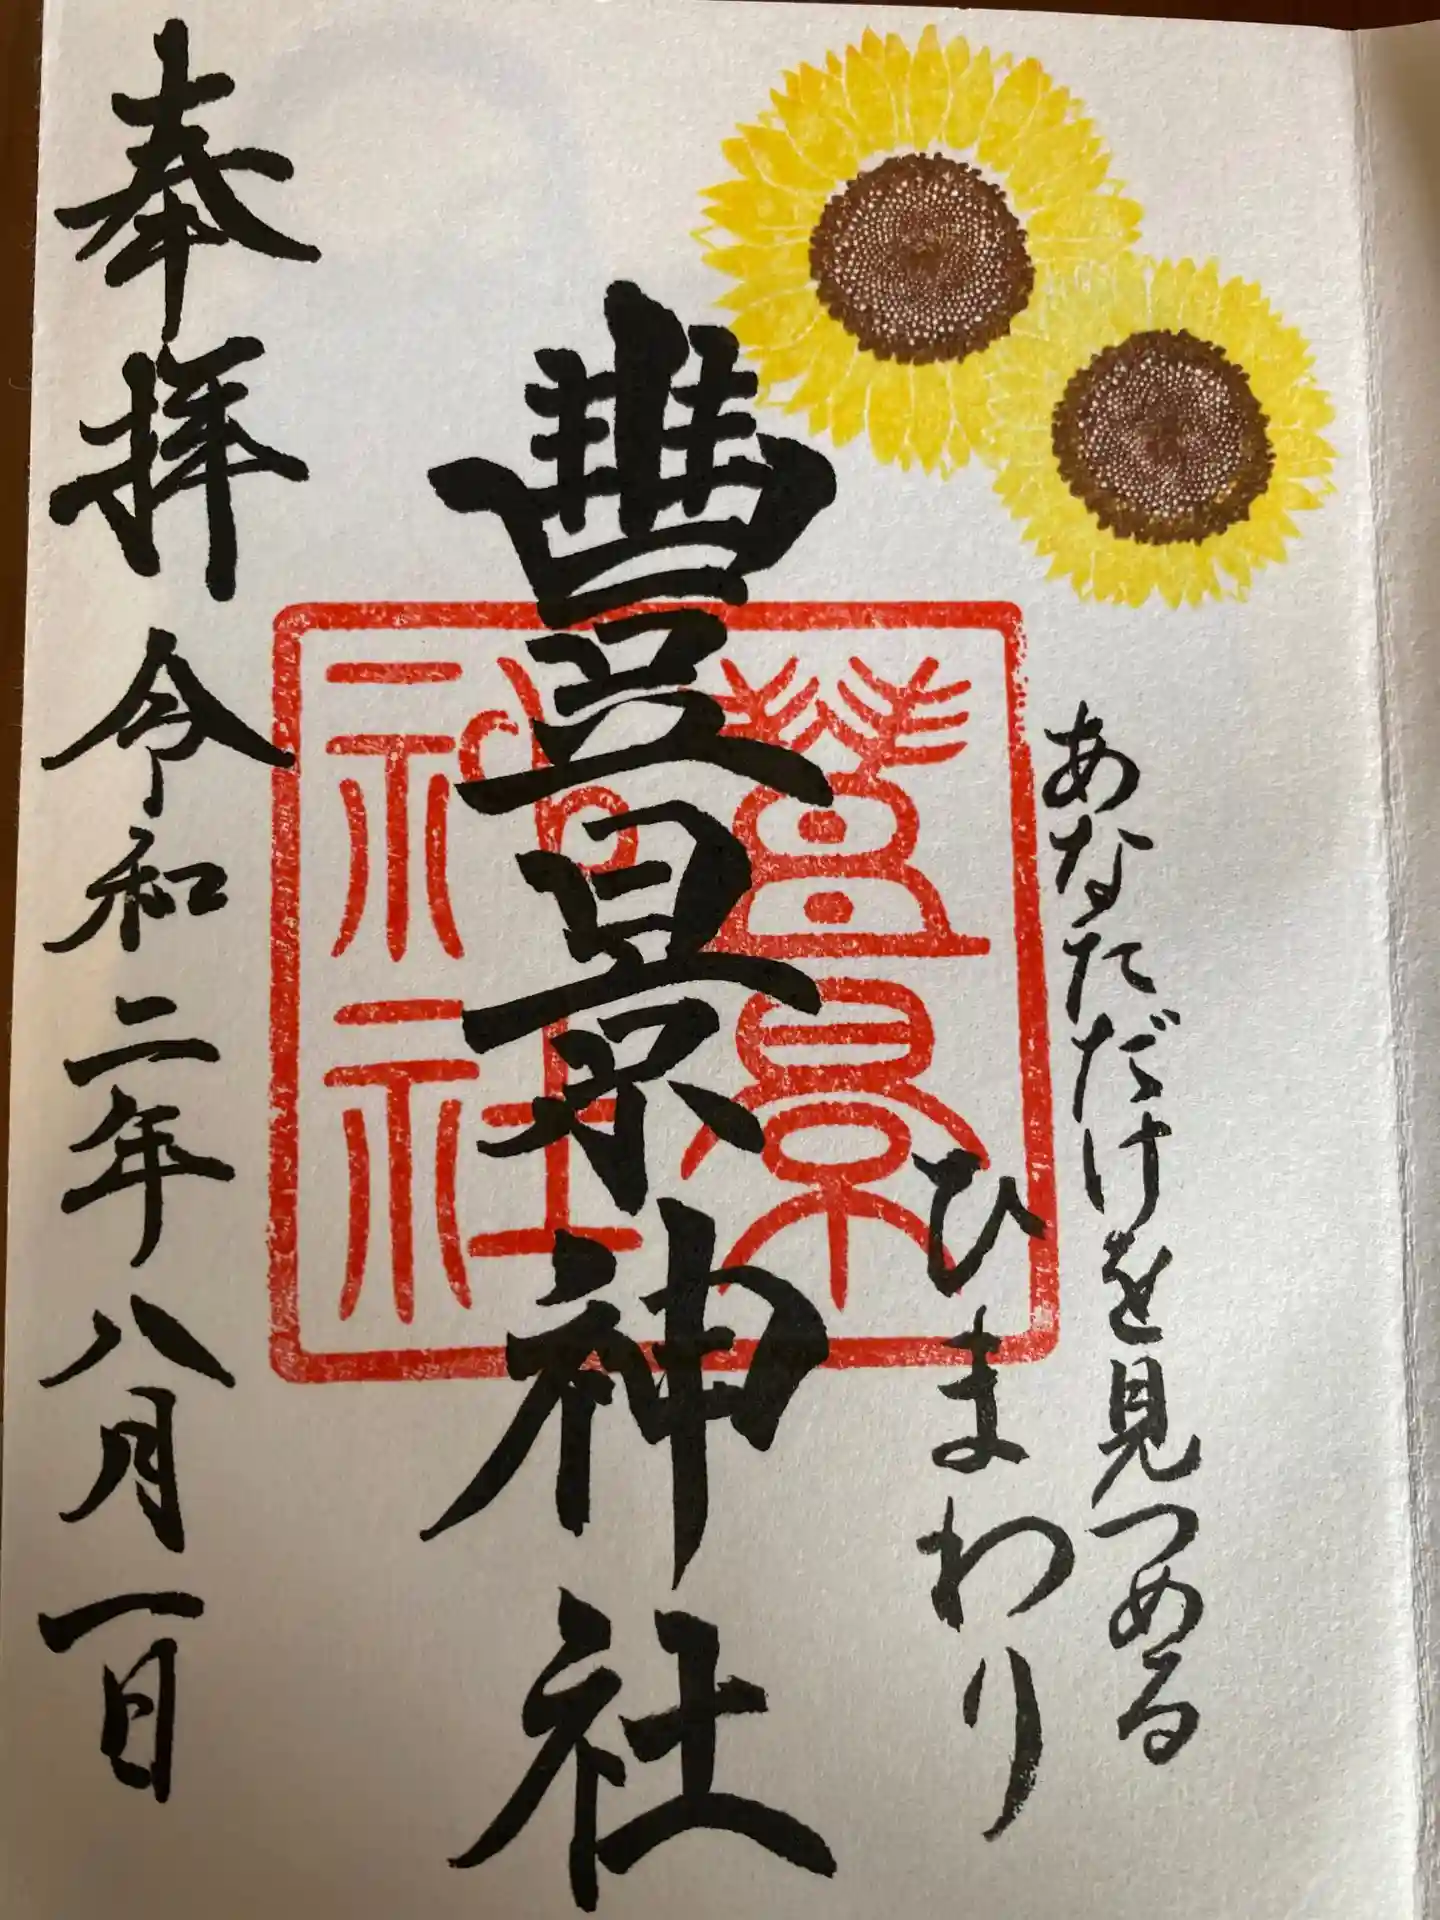 あなただけを見つめる
ひまわり
豊景神社
豊景神社
奉拝 令和二年八月一日